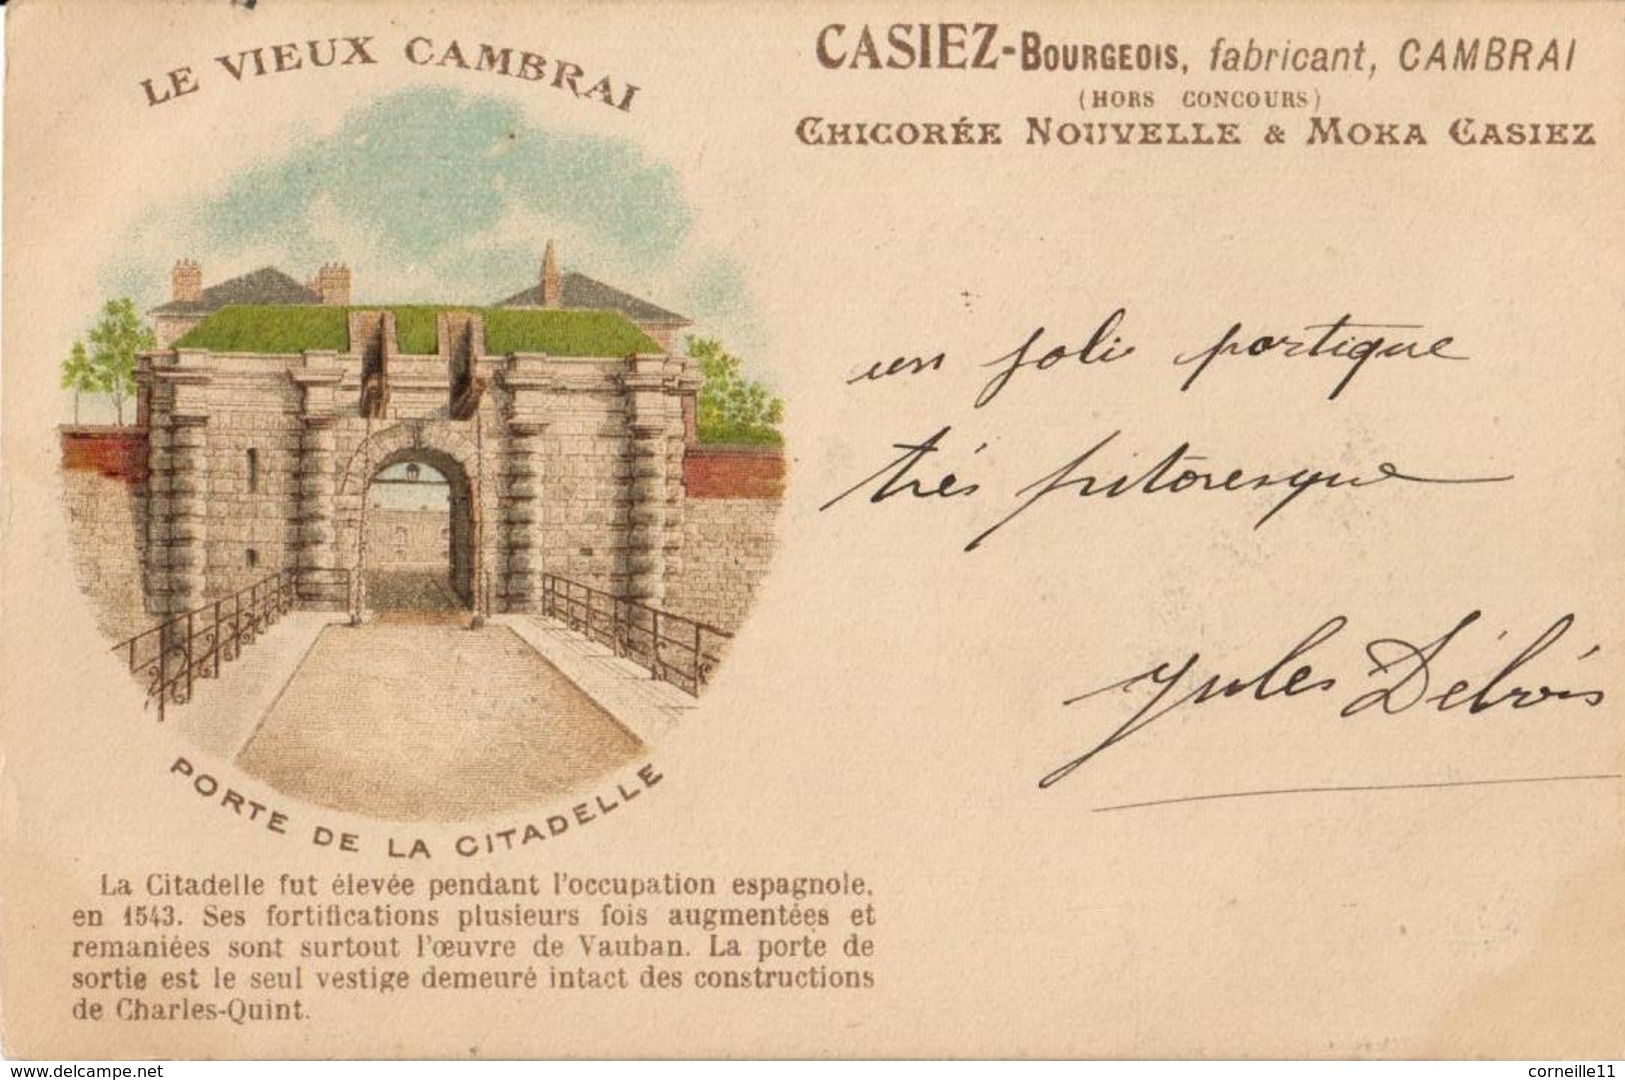 LE VIEUX CAMBRAI
PORTE DE LA CITADELLE
La Citadelle fut élevée pendant l'occupation espagnole,
en 1543. Ses fortifications plusieurs fois augmentées et
remaniées sont surtout l'œuvre de Vauban. La porte de
sortie est le seul vestige demeuré intact des constructions
de Charles-Quint.
CASIEZ-BOURGEOIS, fabricant, CAMBRAI
(HORS CONCOURS)
CHICORÉE NOUVELLE & MOKA CASIEZ
un joli portique
très pittoresque
Jules Débois
delcampe.net
corneille11